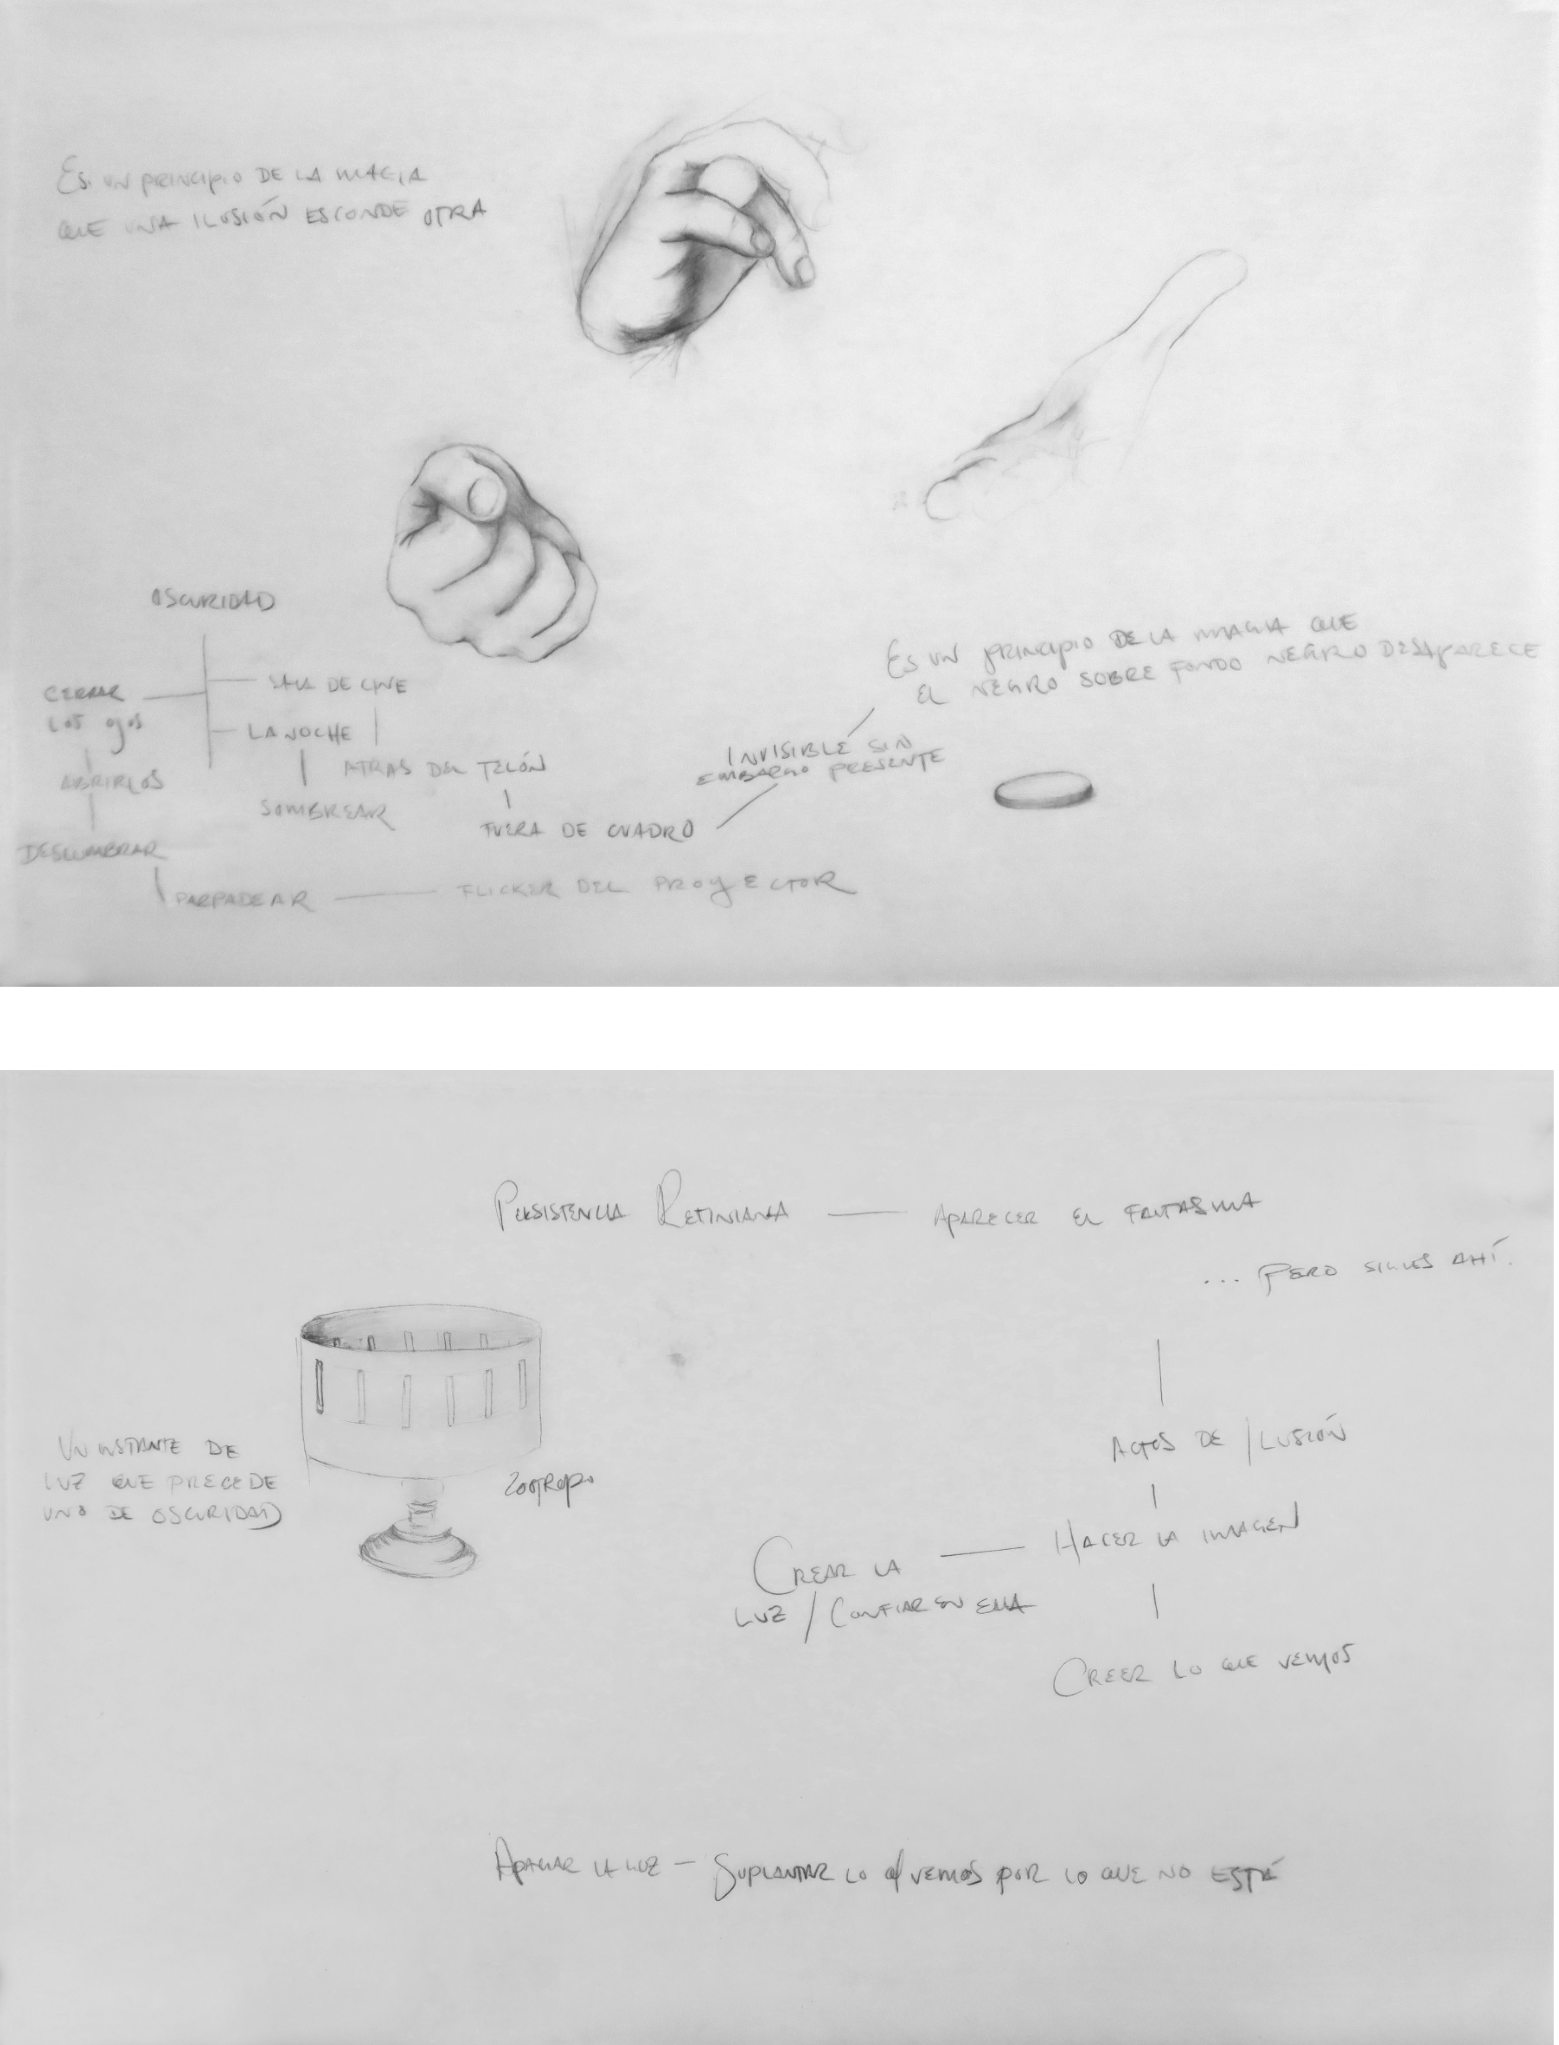 ES UN PRINCIPIO DE LA MAGIA
QUE UNA ILUSIÓN ESCONDE OTRA
OSCURIDAD
CERRAR
LOS OJOS
SALA DE CINE
LA NOCHE
ABRIRLOS
ATRAS DEL TELÓN
SOMBREAR
DESLUMBRAR
FUERA DE CUADRO
PARPADEAR
FLICKER DEL PROYECTOR
INVISIBLE SIN
EMBARGO PRESENTE
ES UN PRINCIPIO DE LA MAGIA QUE
EL NEGRO SOBRE FONDO NEGRO DESAPARECE
PERSISTENCIA RETINIANA — APARECER EL FANTASMA
... PERO SIGUES AHÍ.
UN INSTANTE DE
LUZ QUE PRECEDE
UNO DE OSCURIDAD
ZOOTROPO
ACTOS DE ILUSIÓN
HACER LA IMAGEN
CREAR LA
LUZ / CONFIAR EN ELLA
CREER LO QUE VEMOS
APAGAR LA LUZ — SUPLANTAR LO q VEMOS POR LO QUE NO ESTÁ